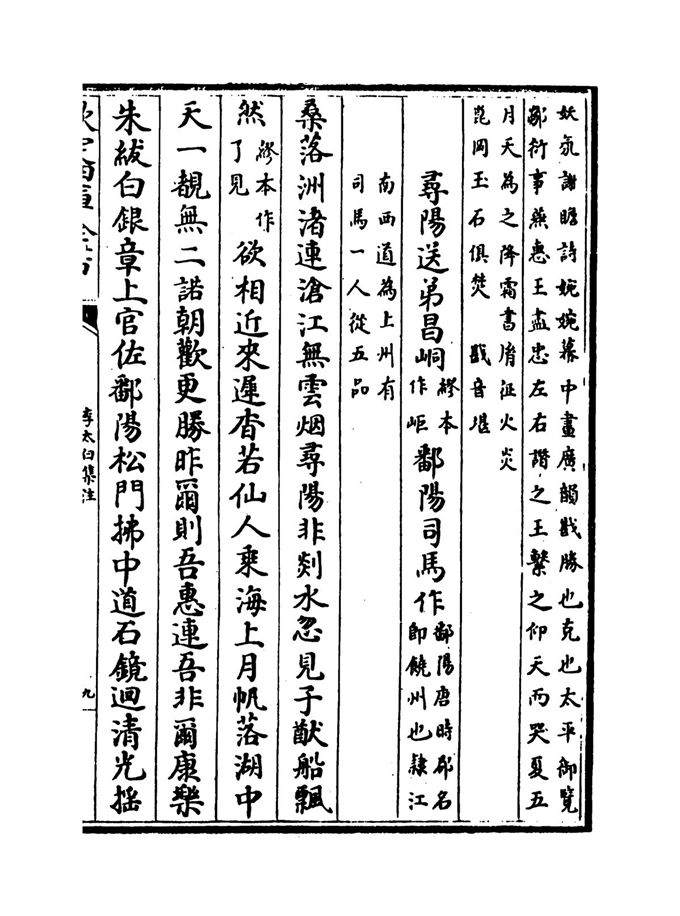 妖氛謝瞻詩婉婉幕中畫廣韻戡勝也克也太平御覽
鄒衍事燕惠王盡忠左右譖之王繫之仰天而哭夏五
月天為之降霜書𦙍征火炎
崑岡玉石俱焚　戡音堪
尋陽送弟昌峒繆本作岠鄱陽司馬作鄱陽唐時郡名即饒州也隷江
南西道為上州有司馬一人從五品
桑落洲渚連滄江無雲烟尋陽非剡水忽見子猷船飄
然繆本作了見欲相近來遲杳若仙人乘海上月帆落湖中
天一覩無二諾朝歡更勝昨爾則吾惠連吾非爾康樂
朱紱白銀章上官佐鄱陽松門拂中道石鏡迴清光揺
李太白集注
九